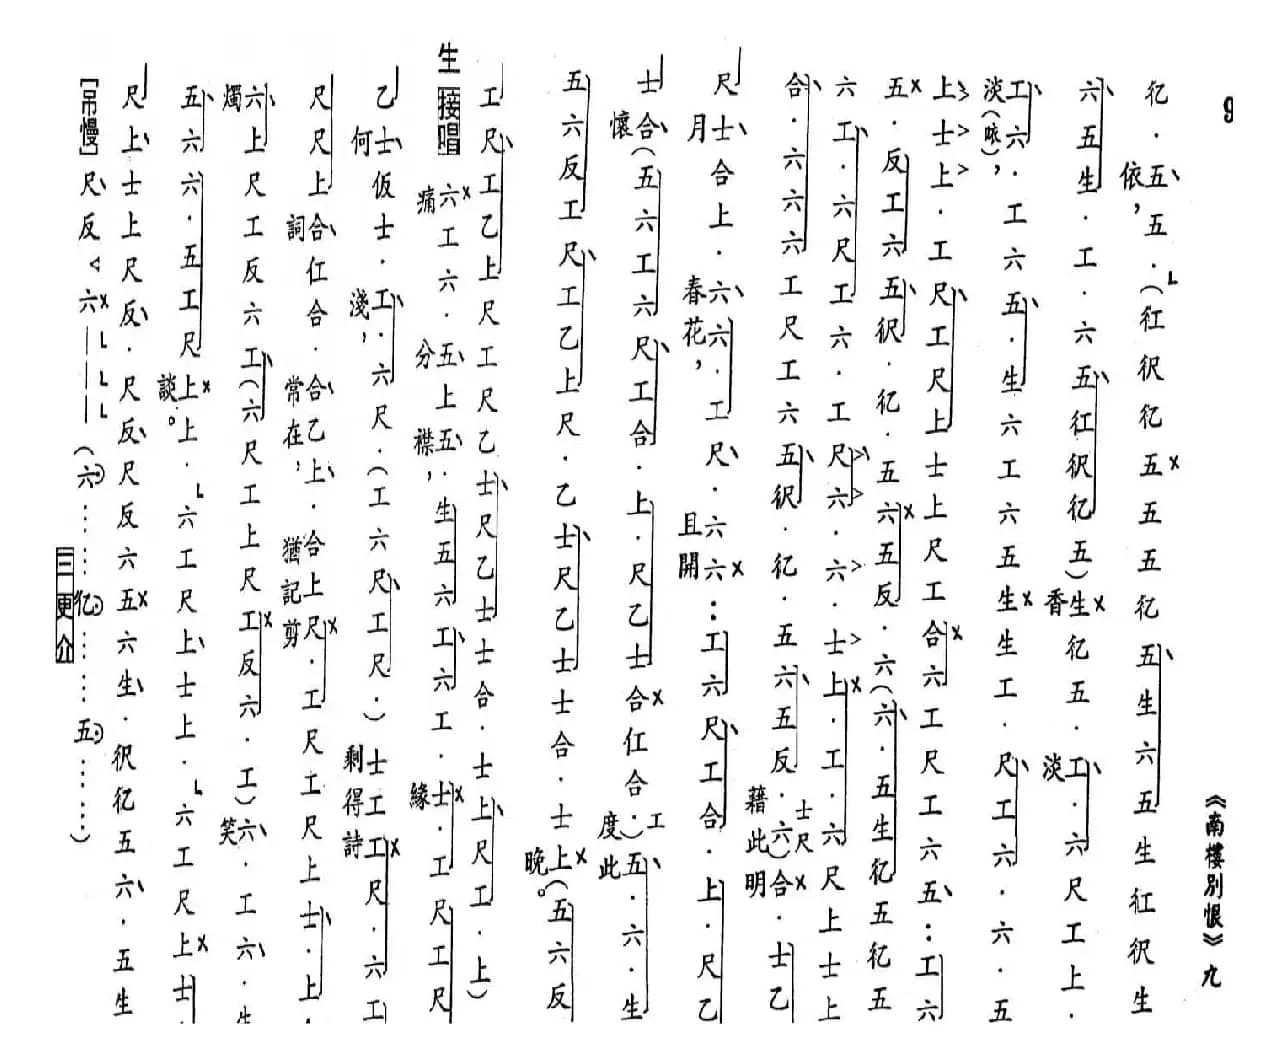 9
《南樓別恨》九
亿．五、五．(仜伬亿五×五五亿五、生六五生仜伬生
依，
六、五生、．工．六五、仜伬亿五)生×亿五．工、．六尺工上．
香 淡
工、六．工六五、．生六工六五生×生工．尺、工六．六．五
淡(哝)，
上>士>上>．工尺、工尺上士上尺工合×六工尺工六五、：工六
五×．反工六五、伬．亿．五六×五反．六(六、．五生亿五亿五
六工、．六尺工六．工尺>六>．六>．士>上×．工．六尺上士上
合、．六六六工尺工六五、伬．亿．五六、五反．六)合×．士乙
士尺
藉此明
尺士、合上．六、六．工尺、．六六×：工六尺、工合．上．尺乙
月 春花， 且開
士合、(五六工六尺、工合．上．尺乙士合×仜合．)五、．六．生
工
懷 度此
五、六反工尺、工乙上尺．乙士、尺乙士士合．士上×(五六反
晚。
工尺、工乙上尺工尺乙士、尺乙士士合．士上、尺工．上)
生 接唱
六×工六．五、上五、．生五六工、六工．士×．工尺工尺
痛 分 襟， 緣
乙士、仮士．工、．六尺．(工六尺、工尺．)士工工×尺．六工
何 淺， 剩得詩
尺尺上合、仜合．合、乙上、．合上尺×．工尺工尺上士、．上．
詞 常在， 猶記剪
六、上尺工反六工、(六尺工上尺工×反六．工)六、．工六、．生
燭 笑
五、六六．五工尺上×上．六工尺上、士上．六工尺上×士
談。
尺上、士上尺反、．尺反、尺反六五×六生、．伬亿五六、．五生
［吊慢］尺、反<六×———(六……亿……五……)
三更介